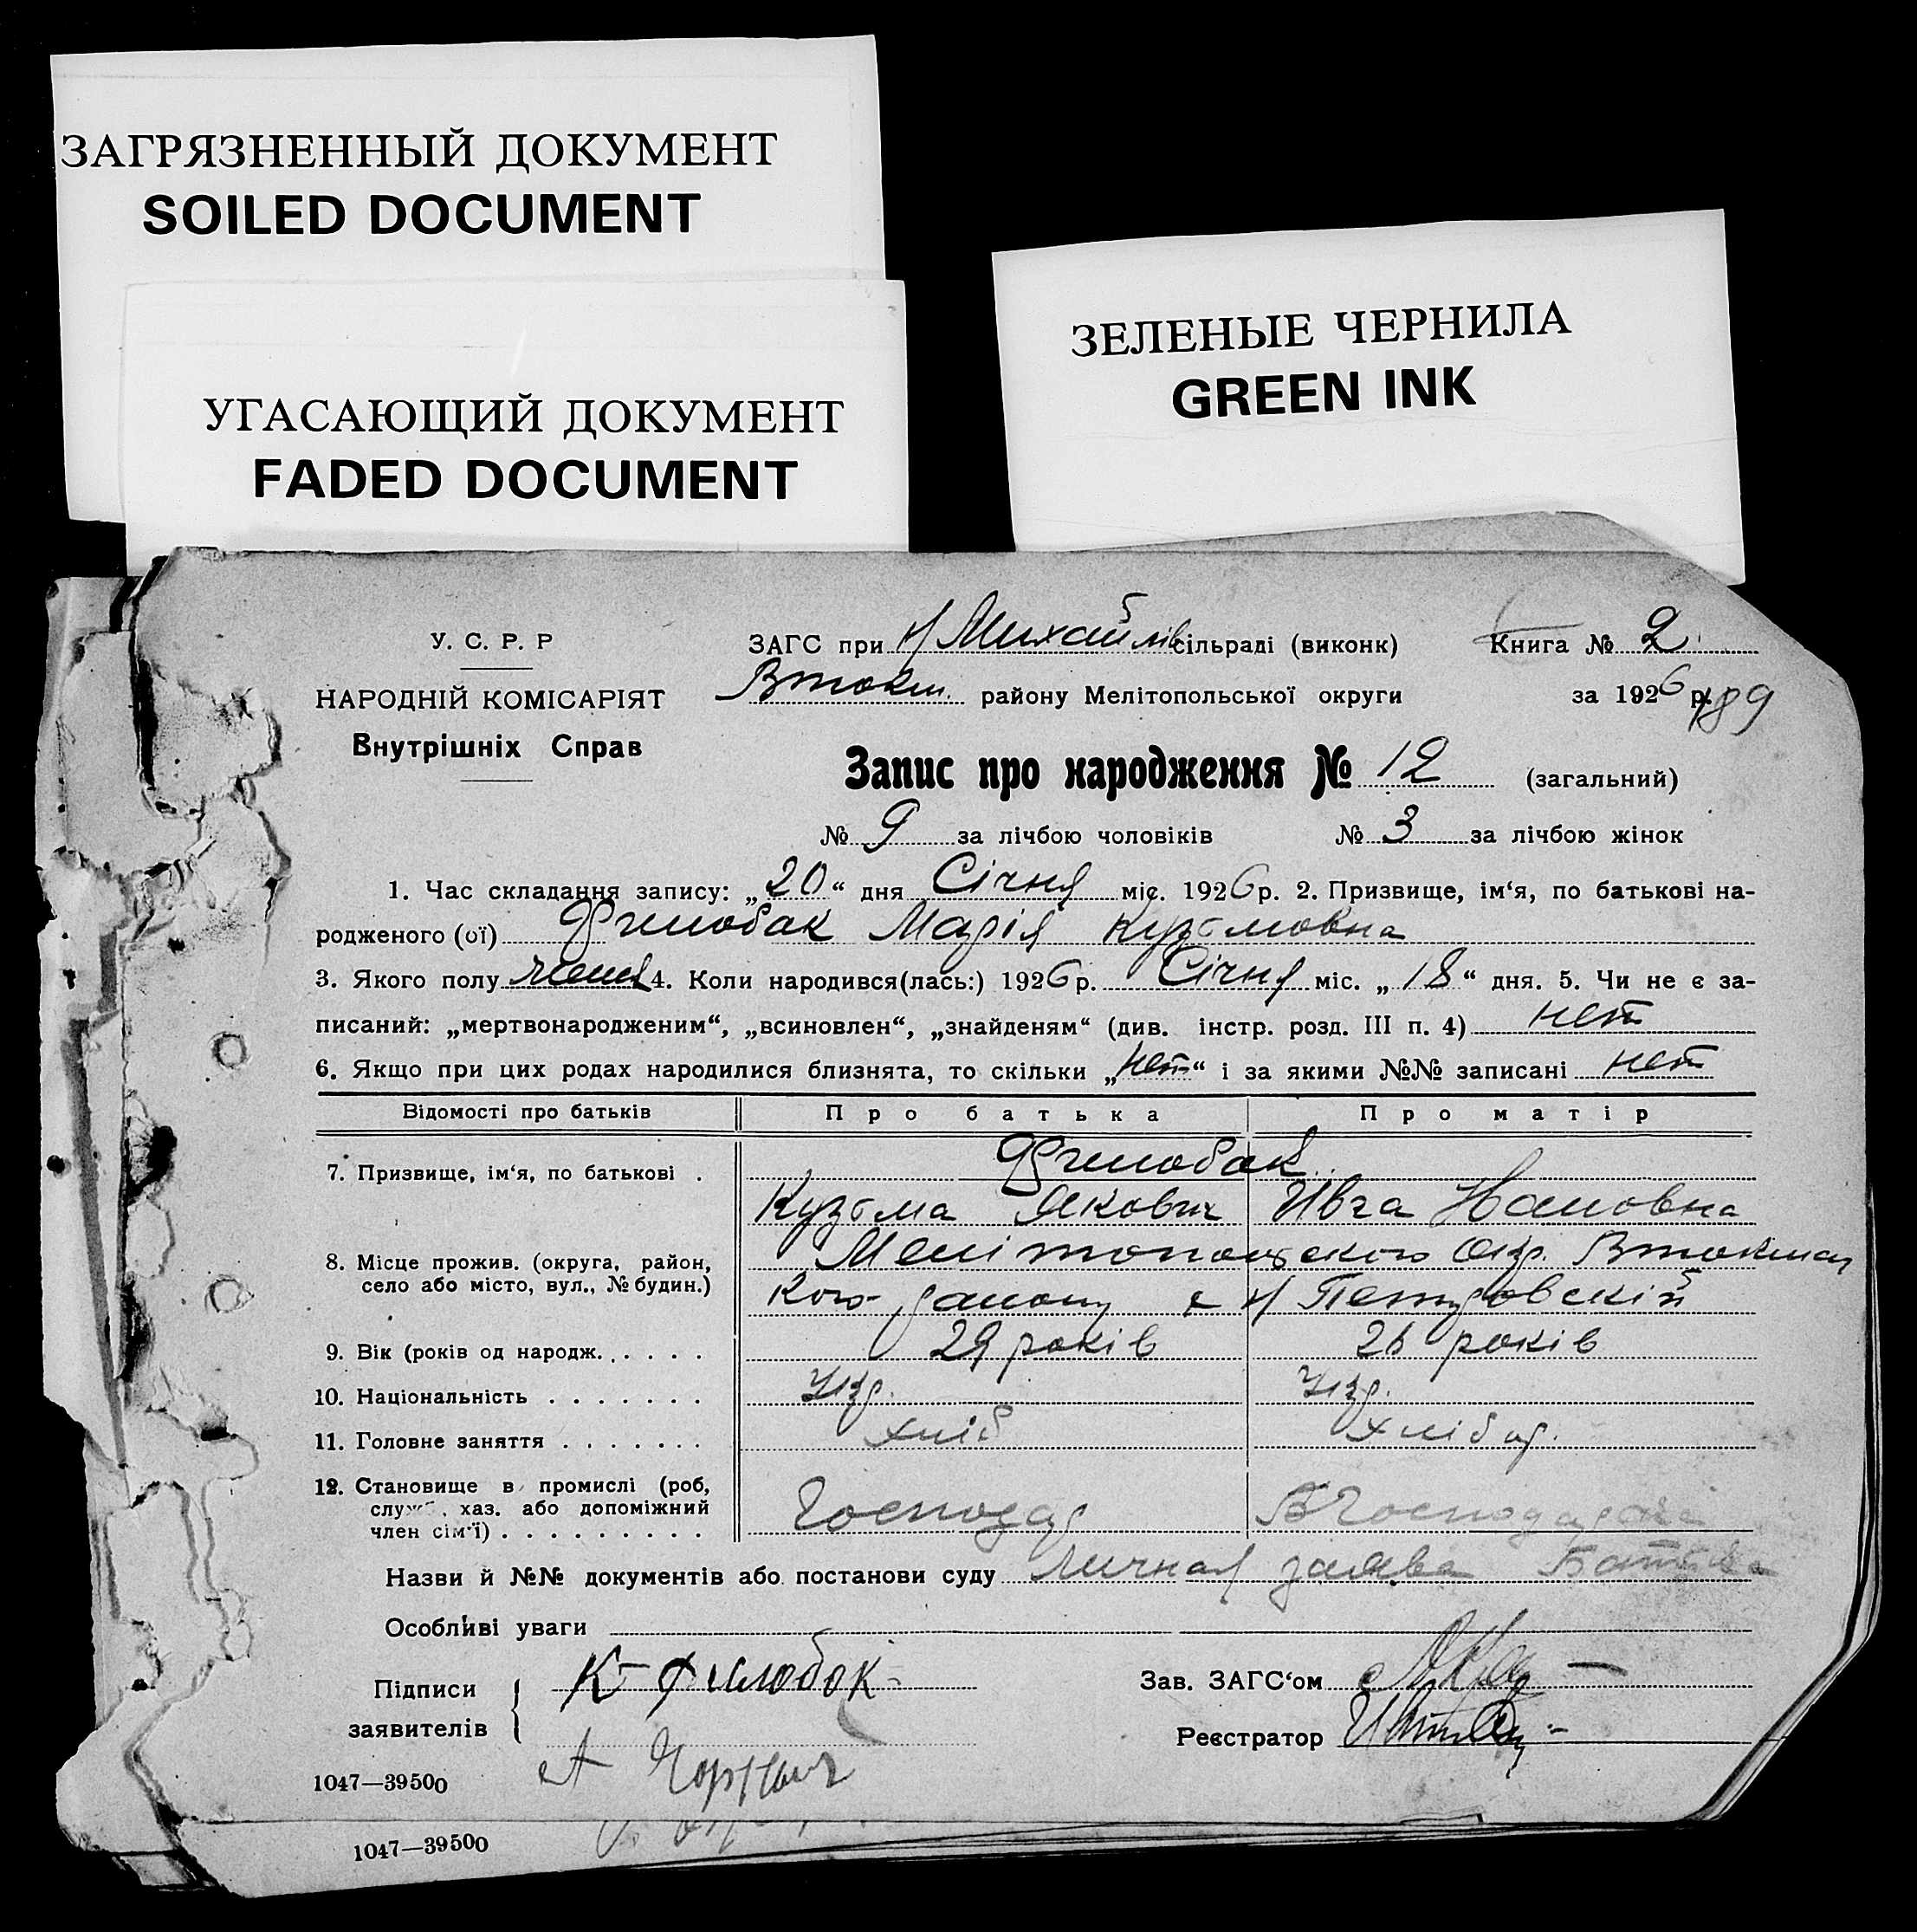 ЗАГРЯЗНЕННЫЙ ДОКУМЕНТ
SOILED DOCUMENT
УГАСАЮЩИЙ ДОКУМЕНТ
FADED DOCUMENT
ЗЕЛЕНЫЕ ЧЕРНИЛА
GREEN INK
У. С. Р. Р
НАРОДНІЙ КОМІСАРІЯТ
Внутрішніх Справ
ЗАГС при Н Михайлів сільраді (виконк)
Втокм. району Мелітопольської округи
Книга № 2
за 1926 р.
189
Запис про народження № 12 (загальний)
№ 9 за лічбою чоловіків № 3 за лічбою жінок
1. Час складання запису: „20“ дня Січня міс. 1926 р. 2. Призвище, ім‘я, по батькові на-
родженого (ої) Филобак Марія Кузьмовна
3. Якого полу 4. Коли народився(лась:) 1926 р. Січня міс. „18“ дня. 5. Чи не є за-
писаний: „мертвонародженим“, „всиновлен“, „знайденям“ (див. інстр. розд. III п. 4) нет
6. Якщо при цих родах народилися близнята, то скільки „нет“ і за якими №№ записані нет
Відомості про батьків Про батька Про матір
7. Призвище, ім‘я, по батькові . Филобак
Кузьма Якович Ивга Ивановна
8. Місце прожив. (округа, район, Мелітопольского Окр. Втокмац
село або місто, вул., № будин.) кого району с Н Петровскій
9. Вік (років од народж. . . . . . 29 років 26 років
10. Національність . . . . . . . Укр. Укр.
11. Головне заняття . . . . . . . хліб хлібор.
12. Становище в промислі (роб,
служб. хаз. або допоміжний
член сім‘ї) . . . . . . . . . Господар В Господарстві
Назви й №№ документів або постанови суду личная заява Батька
Особливі уваги
Підписи
заявителів
К Филобок
А
Зав. ЗАГС‘ом
Реєстратор
1047—39500
1047—39500